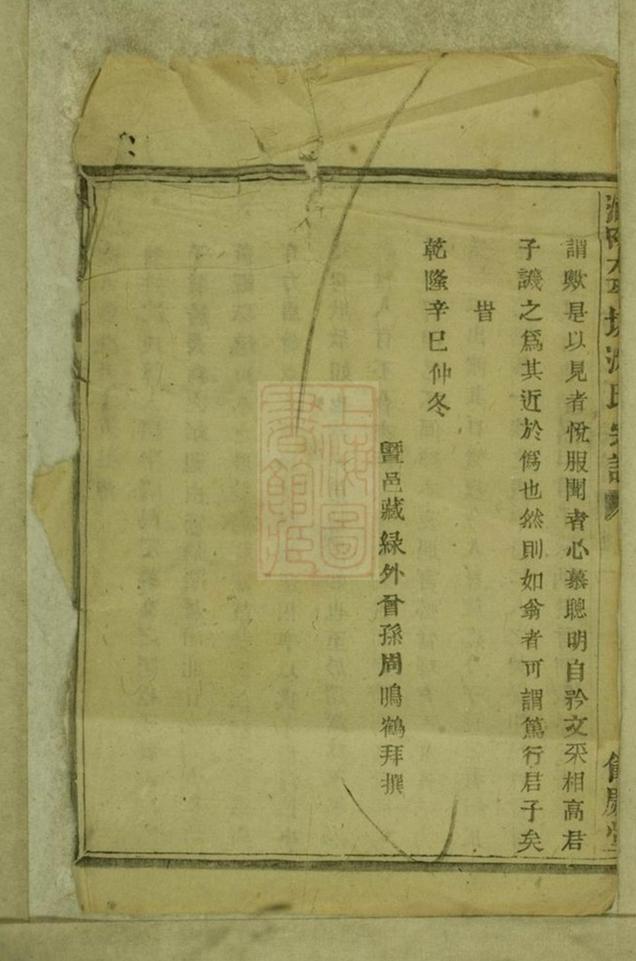 謂歟是以見者悅服聞者心慕聰明自矜文采相高君
子譏之爲其近於僞也然則如翁者可謂篤行君子矣
旹
乾隆辛巳仲冬
暨邑藏綠外曾孫周鳴鶴拜撰
氏宗譜
慶堂
上海圖書館藏